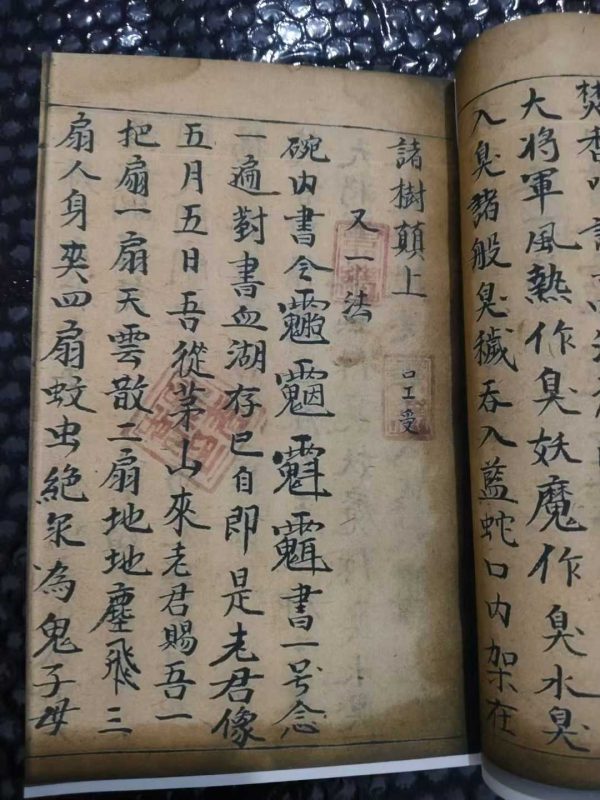 焚香
大將軍風熱作臭妖魔作臭水臭
入臭諸般臭穢吞入藍蛇口内架在
諸樹顛上
口工受
又一法
碗内書令書一号念
一遍對書血湖存已自即是老君像
五月五日吾從茅山來老君賜吾一
把扇一扇天雲散二扇地地塵飛三
扇人身爽四扇蚊虫絶為鬼子母